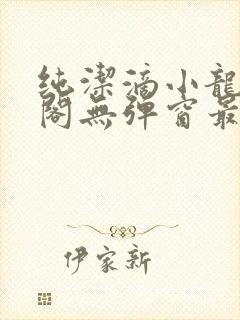 純潔滴小龍
閣無彈窗最
伊家新